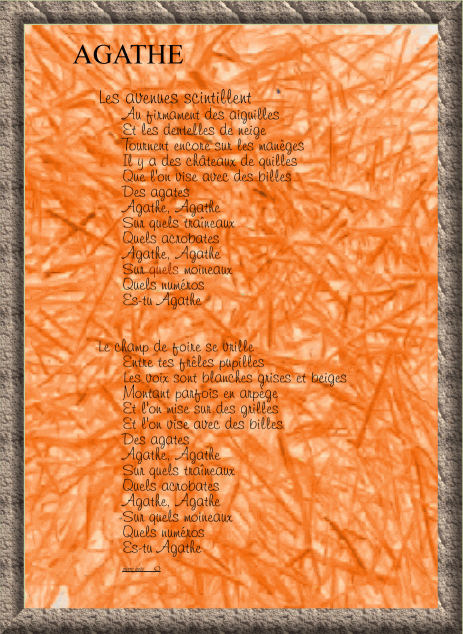 AGATHE
Les avenues scintillent
Au firmament des aiguilles
Et les dentelles de neige
Tournent encore sur les manèges
Il y a des châteaux de quilles
Que l'on vise avec des billes
Des agates
Agathe, Agathe
Sur quels traîneaux
Quels acrobates
Agathe, Agathe
Sur quels moineaux
Quels numéros
Es-tu Agathe
Le champ de foire se vrille
Entre tes frêles pupilles
Les voix sont blanches grises et beiges
Montant parfois en arpège
Et l'on mise sur des grilles
Et l'on vise avec des billes
Des agates
Agathe, Agathe
Sur quels traîneaux
Quels acrobates
Agathe, Agathe
Sur quels moineaux
Quels numéros
Es-tu Agathe